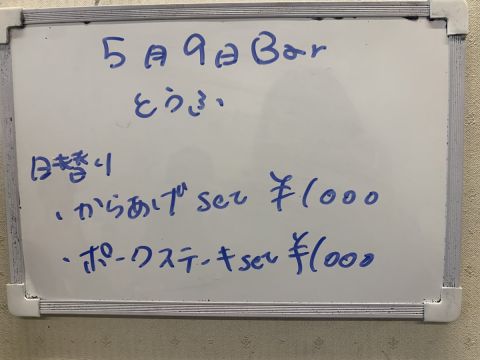 5月9日Bar
とうふ
日替り
・からあげset ¥1000
・ポークステーキset ¥1000